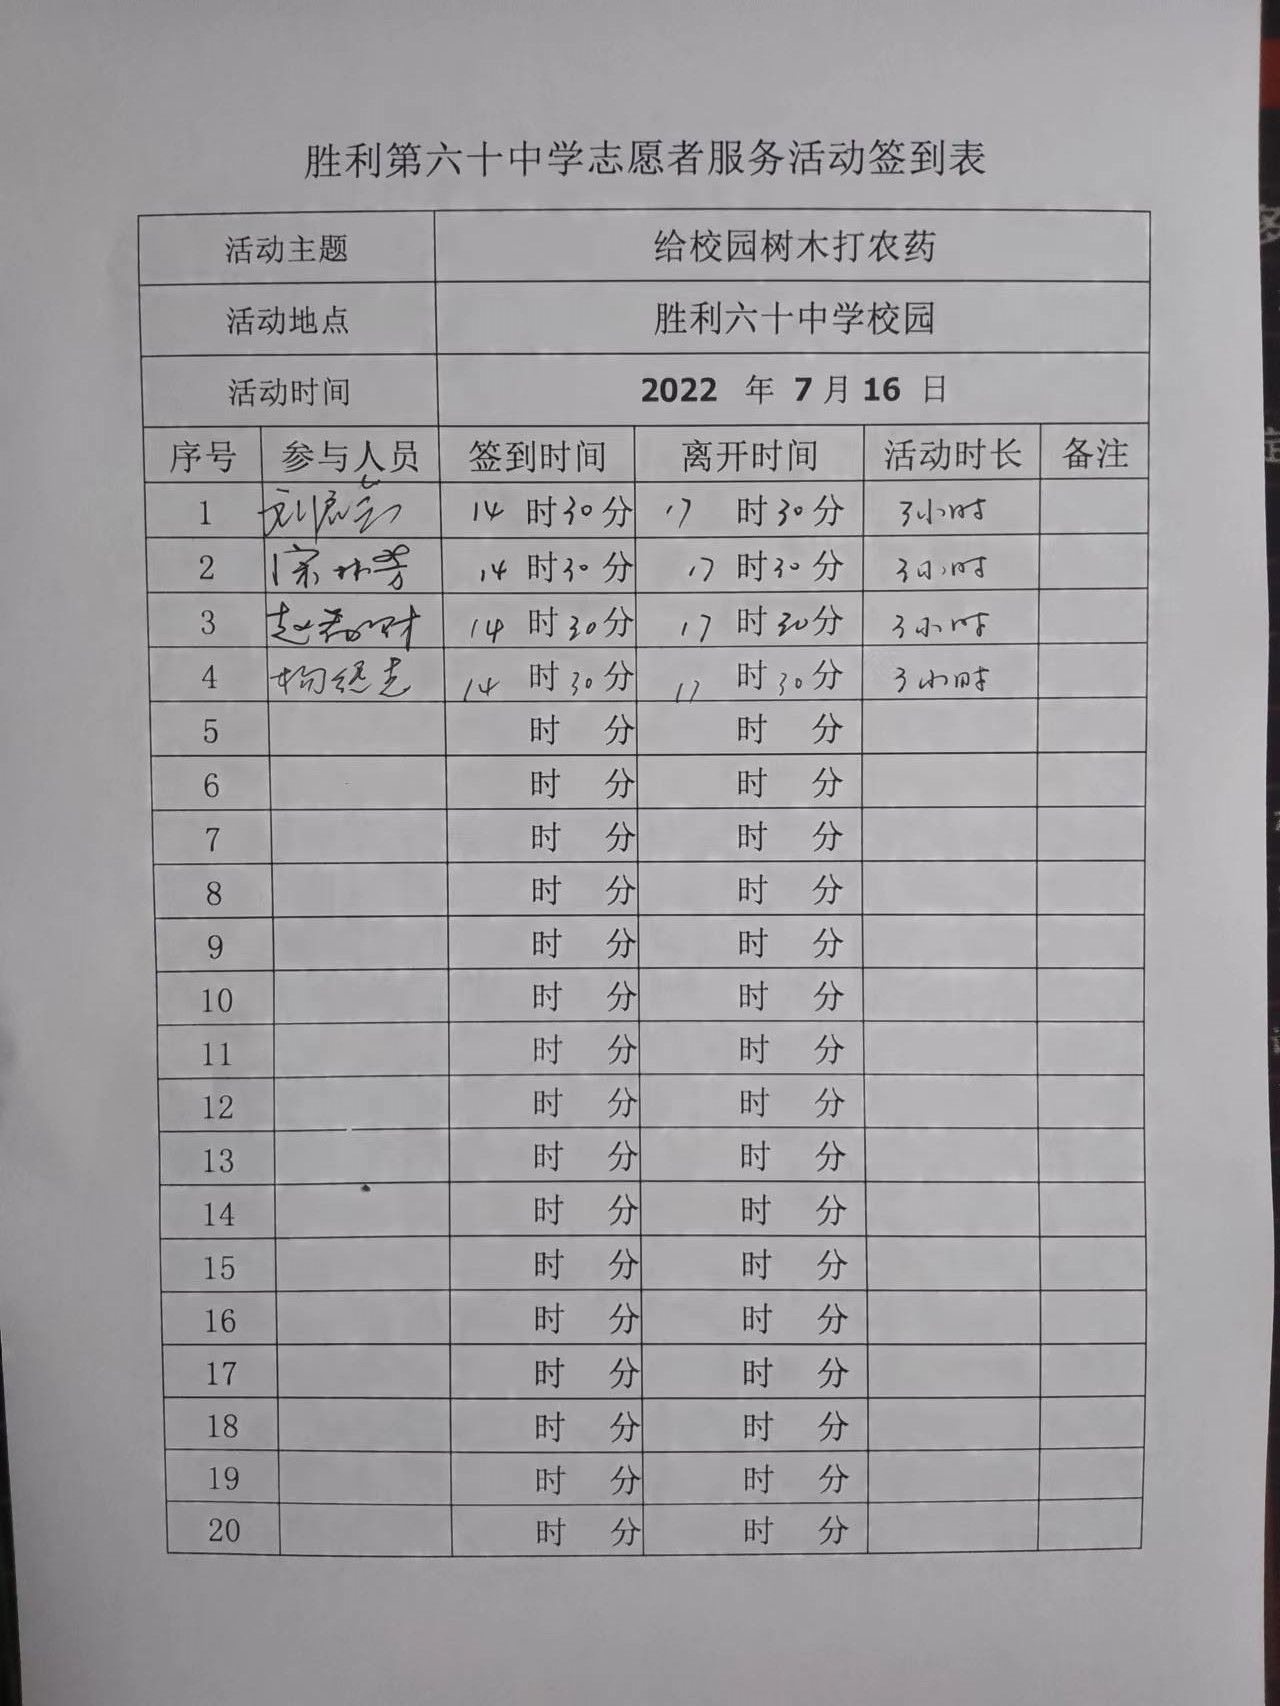 胜利第六十中学志愿者服务活动签到表
活动主题 给校园树木打农药
活动地点 胜利六十中学校园
活动时间 2022 年 7 月 16 日
序号 参与人员 签到时间 离开时间 活动时长 备注
1 14 时 30 分 17 时 30 分 3小时
2 宋林芳 14 时 30 分 17 时 30 分 3小时
3 14 时 30 分 17 时 30 分 3小时
4 14 时 30 分 17 时 30 分 3小时
5 时 分 时 分
6 时 分 时 分
7 时 分 时 分
8 时 分 时 分
9 时 分 时 分
10 时 分 时 分
11 时 分 时 分
12 时 分 时 分
13 时 分 时 分
14 时 分 时 分
15 时 分 时 分
16 时 分 时 分
17 时 分 时 分
18 时 分 时 分
19 时 分 时 分
20 时 分 时 分